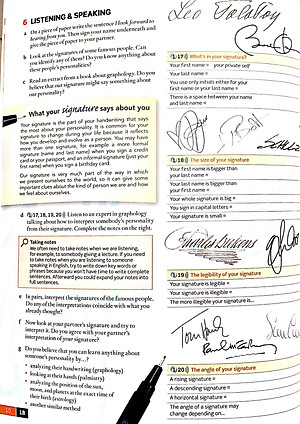 6 LISTENING & SPEAKING
a On a piece of paper write the sentence I look forward to
hearing from you. Then sign your name underneath and
give the piece of paper to your partner.
b Look at the signatures of some famous people. Can
you identify any of them? Do you know anything about
these people's personalities?
c Read an extract from a book about graphology. Do you
believe that our signature might say something about
our personality?
What your signature says about you
Your signature is the part of your handwriting that says
the most about your personality. It is common for your
signature to change during your life because it reflects
how you develop and evolve as a person. You may have
more than one signature, for example a more formal
signature (name and last name) when you sign a credit
card or your passport, and an informal signature (just your
first name) when you sign a birthday card.
Our signature is very much part of the way in which
we present ourselves to the world, so it can give some
important clues about the kind of person we are and how
we feel about ourselves.
d 1.17, 18, 19, 20 Listen to an expert in graphology
talking about how to interpret somebody's personality
from their signature. Complete the notes on the right.
Taking notes
We often need to take notes when we are listening,
for example, to somebody giving a lecture. If you need
to take notes when you are listening to someone
speaking in English, try to write down key words or
phrases because you won't have time to write complete
sentences. Afterward you could expand your notes into
full sentences.
e In pairs, interpret the signatures of the famous people.
Do any of the interpretations coincide with what you
already thought?
f Now look at your partner's signature and try to
interpret it. Do you agree with your partner's
interpretation of your signature?
g Do you believe that you can learn anything about
someone's personality by...?
• analyzing their handwriting (graphology)
• looking at their hands (palmistry)
• analyzing the position of the sun,
moon, and planets at the exact time of
their birth (astrology)
• another similar method
10
18
Leo Tolstoy
1.17 What's in your signature?
Your first name = your private self
Your last name =
You use only initials either for your
first name or your last name =
There is a space between your name
and last name =
1.18 The size of your signature
Your first name is bigger than
your last name =
Your last name is bigger than
your first name =
Your whole signature is big =
You sign in capital letters =
Your signature is small =
Charles Dickens
1.19 The legibility of your signature
Your signature is legible =
Your signature is illegible =
The more illegible your signature is...
Paul McCartney
1.20 The angle of your signature
A rising signature =
A descending signature =
A horizontal signature =
The angle of a signature may
change depending on...